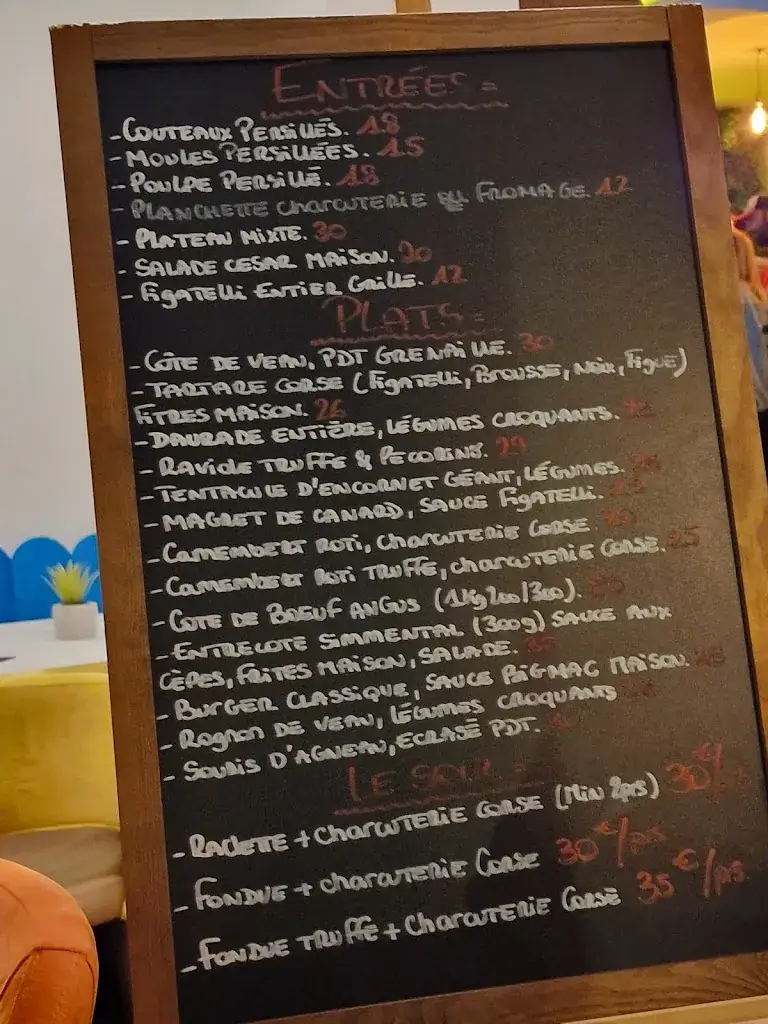 ENTRÉES =
- COUTEAUX PERSILLÉS. 18
- MOULES PERSILLÉES. 15
- POULPE PERSILLÉ. 18
- PLANCHETTE CHARCUTERIE OU FROMAGE. 12
- PLATEAU MIXTE. 30
- SALADE CESAR MAISON. 20
- FIGATELLI ENTIER GRILLÉ. 12
PLATS =
- CÔTE DE VEAU, PDT GRENAILLE. 30
- TARTARE CORSE (FIGATELLI, BROUSSE, NOIX, FIGUE)
FRITES MAISON. 26
- DAURADE ENTIÈRE, LÉGUMES CROQUANTS.
- RAVIOLE TRUFFE & PECORINO. 29
- TENTACULE D'ENCORNET GÉANT, LÉGUMES.
- MAGRET DE CANARD, SAUCE FIGATELLI.
- CAMEMBERT ROTI, CHARCUTERIE CORSE
- CAMEMBERT ROTI TRUFFE, CHARCUTERIE CORSE. 25
- COTE DE BOEUF ANGUS (1KG200/300).
- ENTRECOTE SIMMENTAL (300g) SAUCE AUX
CÈPES, FRITES MAISON, SALADE.
- BURGER CLASSIQUE, SAUCE BIGMAC MAISON.
- ROGNON DE VEAU, LÉGUMES CROQUANTS
- SOURIS D'AGNEAU, ECRASÉ PDT.
LE SOIR =
- RACLETTE + CHARCUTERIE CORSE (MIN 2prs) 30€/
- FONDUE + CHARCUTERIE CORSE 30€/prs
- FONDUE TRUFFE + CHARCUTERIE CORSE 35€/prs